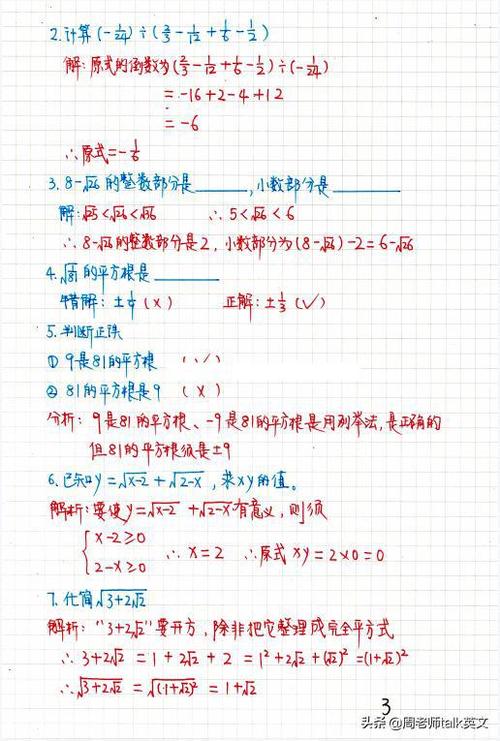 2.计算(-1/24)÷(2/3-1/12+1/6-1/2)
解:原式的倒数为(2/3-1/12+1/6-1/2)÷(-1/24)
=-16+2-4+12
=-6
∴原式=-1/6
3. 8-√26的整数部分是______,小数部分是______
解:√25<√26<√36 ∴5<√26<6
∴8-√26的整数部分是2,小数部分为(8-√26)-2=6-√26
4.的平方根是______
错解:±(×) 正解:±1/3(√)
5.判断正误
①9是81的平方根 (√)
②81的平方根是9 (×)
分析:9是81的平方根、-9是81的平方根是用列举法,是正确的
但81的平方根须是±9
6.已知y=√x-2+√2-x,求xy的值。
解析:要使y=√x-2+√2-x有意义,则须
{x-2≥0
2-x≥0 ∴x=2 ∴原式xy=2×0=0
7.化简√3+2√2
解析:"3+2√2"要开方,除非把它整理成完全平方式
∴3+2√2=1+2√2+2=1²+2√2+(√2)²=(1+√2)²
∴√3+2√2=√(1+√2)²=1+√2
3
头条@周老师talk英文